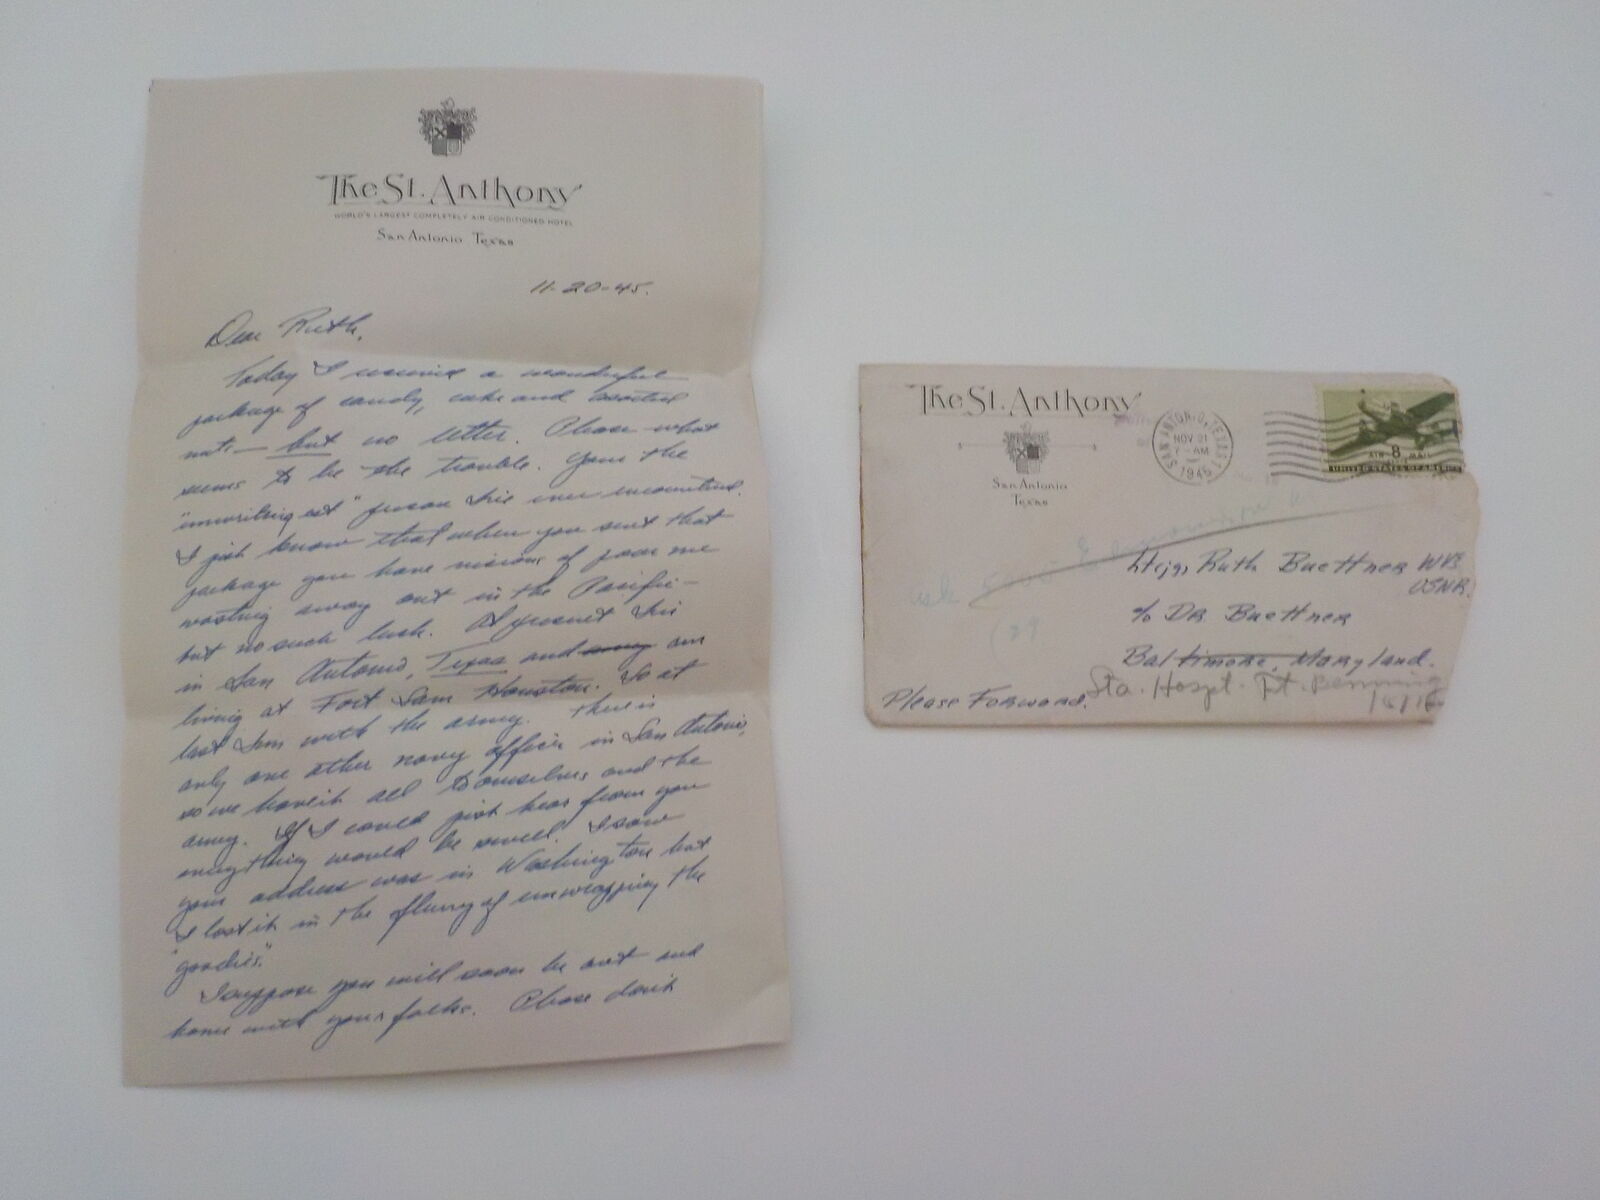 The St. Anthony
WORLD'S LARGEST COMPLETELY AIR CONDITIONED HOTEL
San Antonio Texas
11-20-45.
Dear Ruth,
Today I received a wonderful
package of candy, cake and assorted
nuts — but no letter. Please what
seems to be the trouble. Your the
"unwritingest" person I've ever encountered.
I just know that when you sent that
package you have visions of poor me
wasting away out in the Pacific —
but no such luck. At present I'm
in San Antonio, Texas and away am
living at Fort Sam Houston. So at
last I'm with the army. There is
only one other navy officer in San Antonio,
so we have it all to ourselves and the
army. If I could just hear from you
everything would be swell. I saw
your address was in Washington but
I lost it in the flurry of unwrapping the
"goodies."
I suppose you will soon be out and
home with your folks. Please don't
The St. Anthony
San Antonio
Texas
SAN ANTONIO, TEXAS 1
NOV 21
7 - AM
1945
AIR 8¢ MAIL
UNITED STATES OF AMERICA
Lt(jg) Ruth Buettner WVS
USNR.
c/o DR Buettner
Baltimore, Maryland.
Please Forward.
Sta. Hospt. Ft. Benning